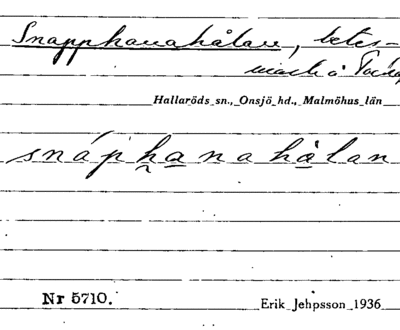 Snapphanahålan, betes-
mark å
Hallaröds sn., Onsjö hd., Malmöhus län
snáphanahålan
Nr 5710.
Erik Jehpsson 1936